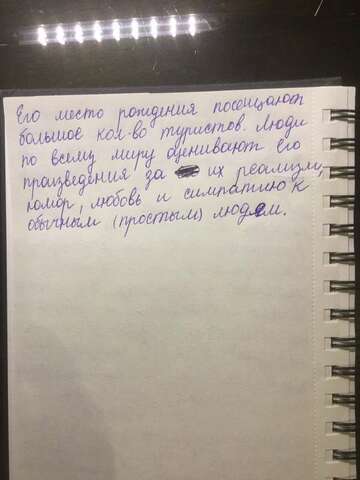 Его место рождения посещают
большое кол-во туристов. Люди
по всему миру оценивают его
произведения за их реализм,
юмор, любовь и симпатию к
обычным (простым) людем.